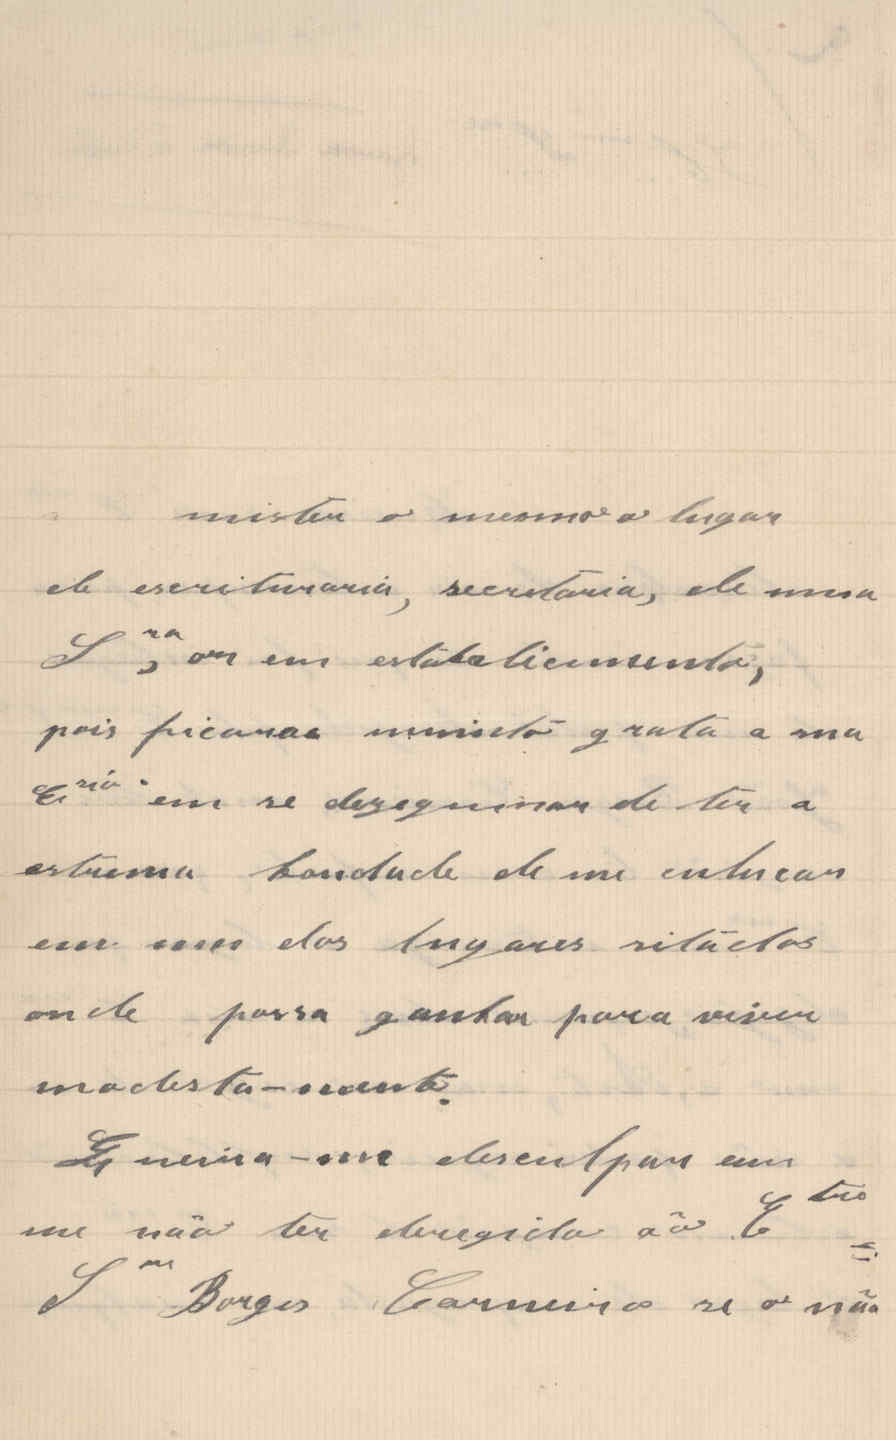 mister o mesmo o lugar
de escrituraria, secretaria, de uma
Sra, ou em estabelicimento,
pois ficarae muinto grata a sua
Eria. em se dezegninar de ter a
estrema bondade de me culucar
em um dos lugares sitádos
onde possa ganhar para viver
modesta-mente.
Queira-me desculpar em
me não ter deregido aõ Etrio
Snr Borges Carneiro se o não